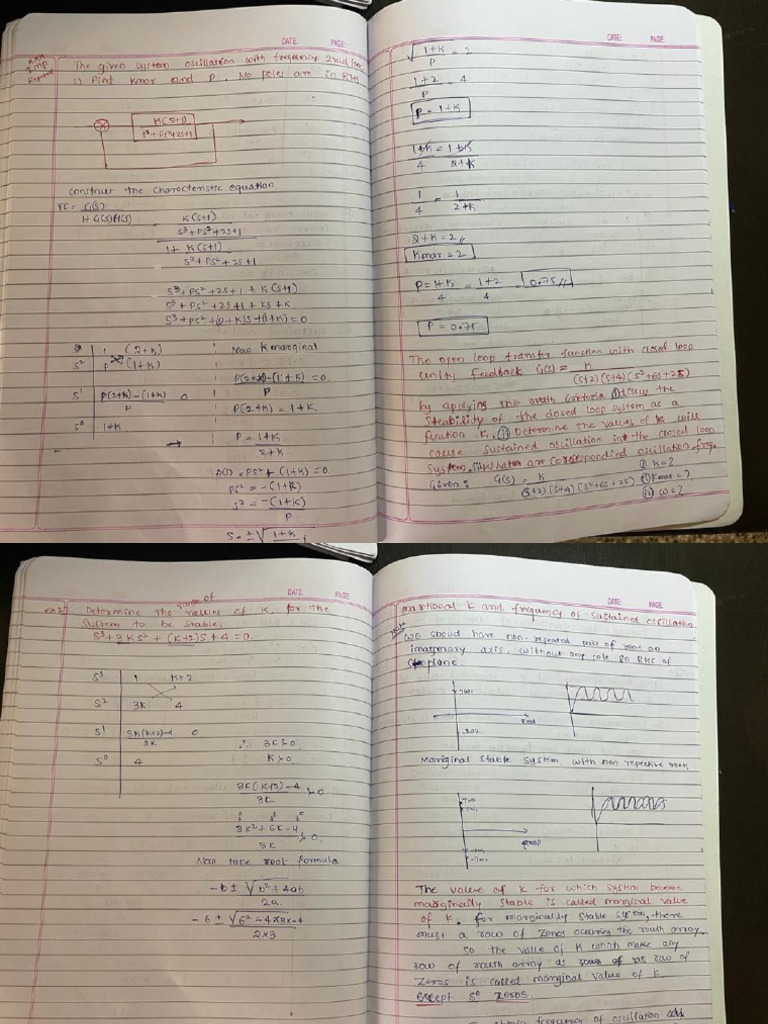 DATE: PAGE:
*** Imp Repeated
The given system oscillation with frequency 2rad/sec
:) Find kmar and P. No poles are in RHS
K(S+1)
S³+PS²+2S+1
construct the characteristic equation
G(S)
1+G(S)H(S)
= K(S+1)
S³+PS²+2S+1
1+ K(S+1)
S³+PS²+2S+1
S³+PS²+2S+1+K(S+1)
S³+PS²+2S+1+KS+K
S³+PS²+(2+K)S+(1+K)=0
S³ 1 (2+K)
S² P (1+K)
S¹ P(2+K)-(1+K) 0
P
S⁰ 1+K
Now K marginal
P(2+K)-(1+K) = 0
P
P(2+K) = 1+K
→ P = 1+K
2+K
A(S) = PS²+(1+K)=0
PS² = -(1+K)
S² = -(1+K)
P
S = ±√ 1+K
DATE: PAGE:
√ 1+K = 2
P
1+2 = 4
P
P = 1+K
1+K = 1+K
4 2+K
1 = 1
4 2+K
2+K = 2
Kmar = 2
P = 1+K = 1+2 = 0.75//
4 4
P = 0.75
The open loop transfer function with closed loop
unity feedback G(S) = K
(S+2)(S+4)(S²+6S+25)
by applying the routh criteria (i) the
Steability of the closed loop system as a
function K, (ii) Determine the values of K will
cause sustained oscillation in the closed loop
system, (iii) What are corresponding oscillation freq.
Given: G(S) = K
(S+2)(S+4)(S²+6S+25)
(i) K=?
(ii) Kmar=?
(iii) ω=?
DATE: PAGE:
Ex 2) Determine the range of values of K, for the
System to be stable,
S³+3KS²+(K+2)S+4=0.
S³ 1 K+2
S² 3K 4
S¹ 3K(K+2)-4 0
3K
S⁰ 4
∴ 3K>0
K>0
3K(K+2)-4 >0
3K
3K²+6K-4 >0.
3K
Now take root formula
-b ± √b²+4ab
2a
-6 ± √6²-4×3×-4
2×3
DATE: PAGE:
martional K and frequency of sustained oscillation.
we shoud have non-repeated pair of root on
imaginary axis, without any pole on RHS of
S plane.
Marginal stable System, with non repective root,
The valeve of K for which system become
marginally stable is called marginal value
of K. for marginally stable System, there
exist a row of zeros occuring the routh array.
So the value of K which make any
row of routh array as row of
Zeros is called marginal value of K.
except S⁰ zeros.
frequency of oscillation